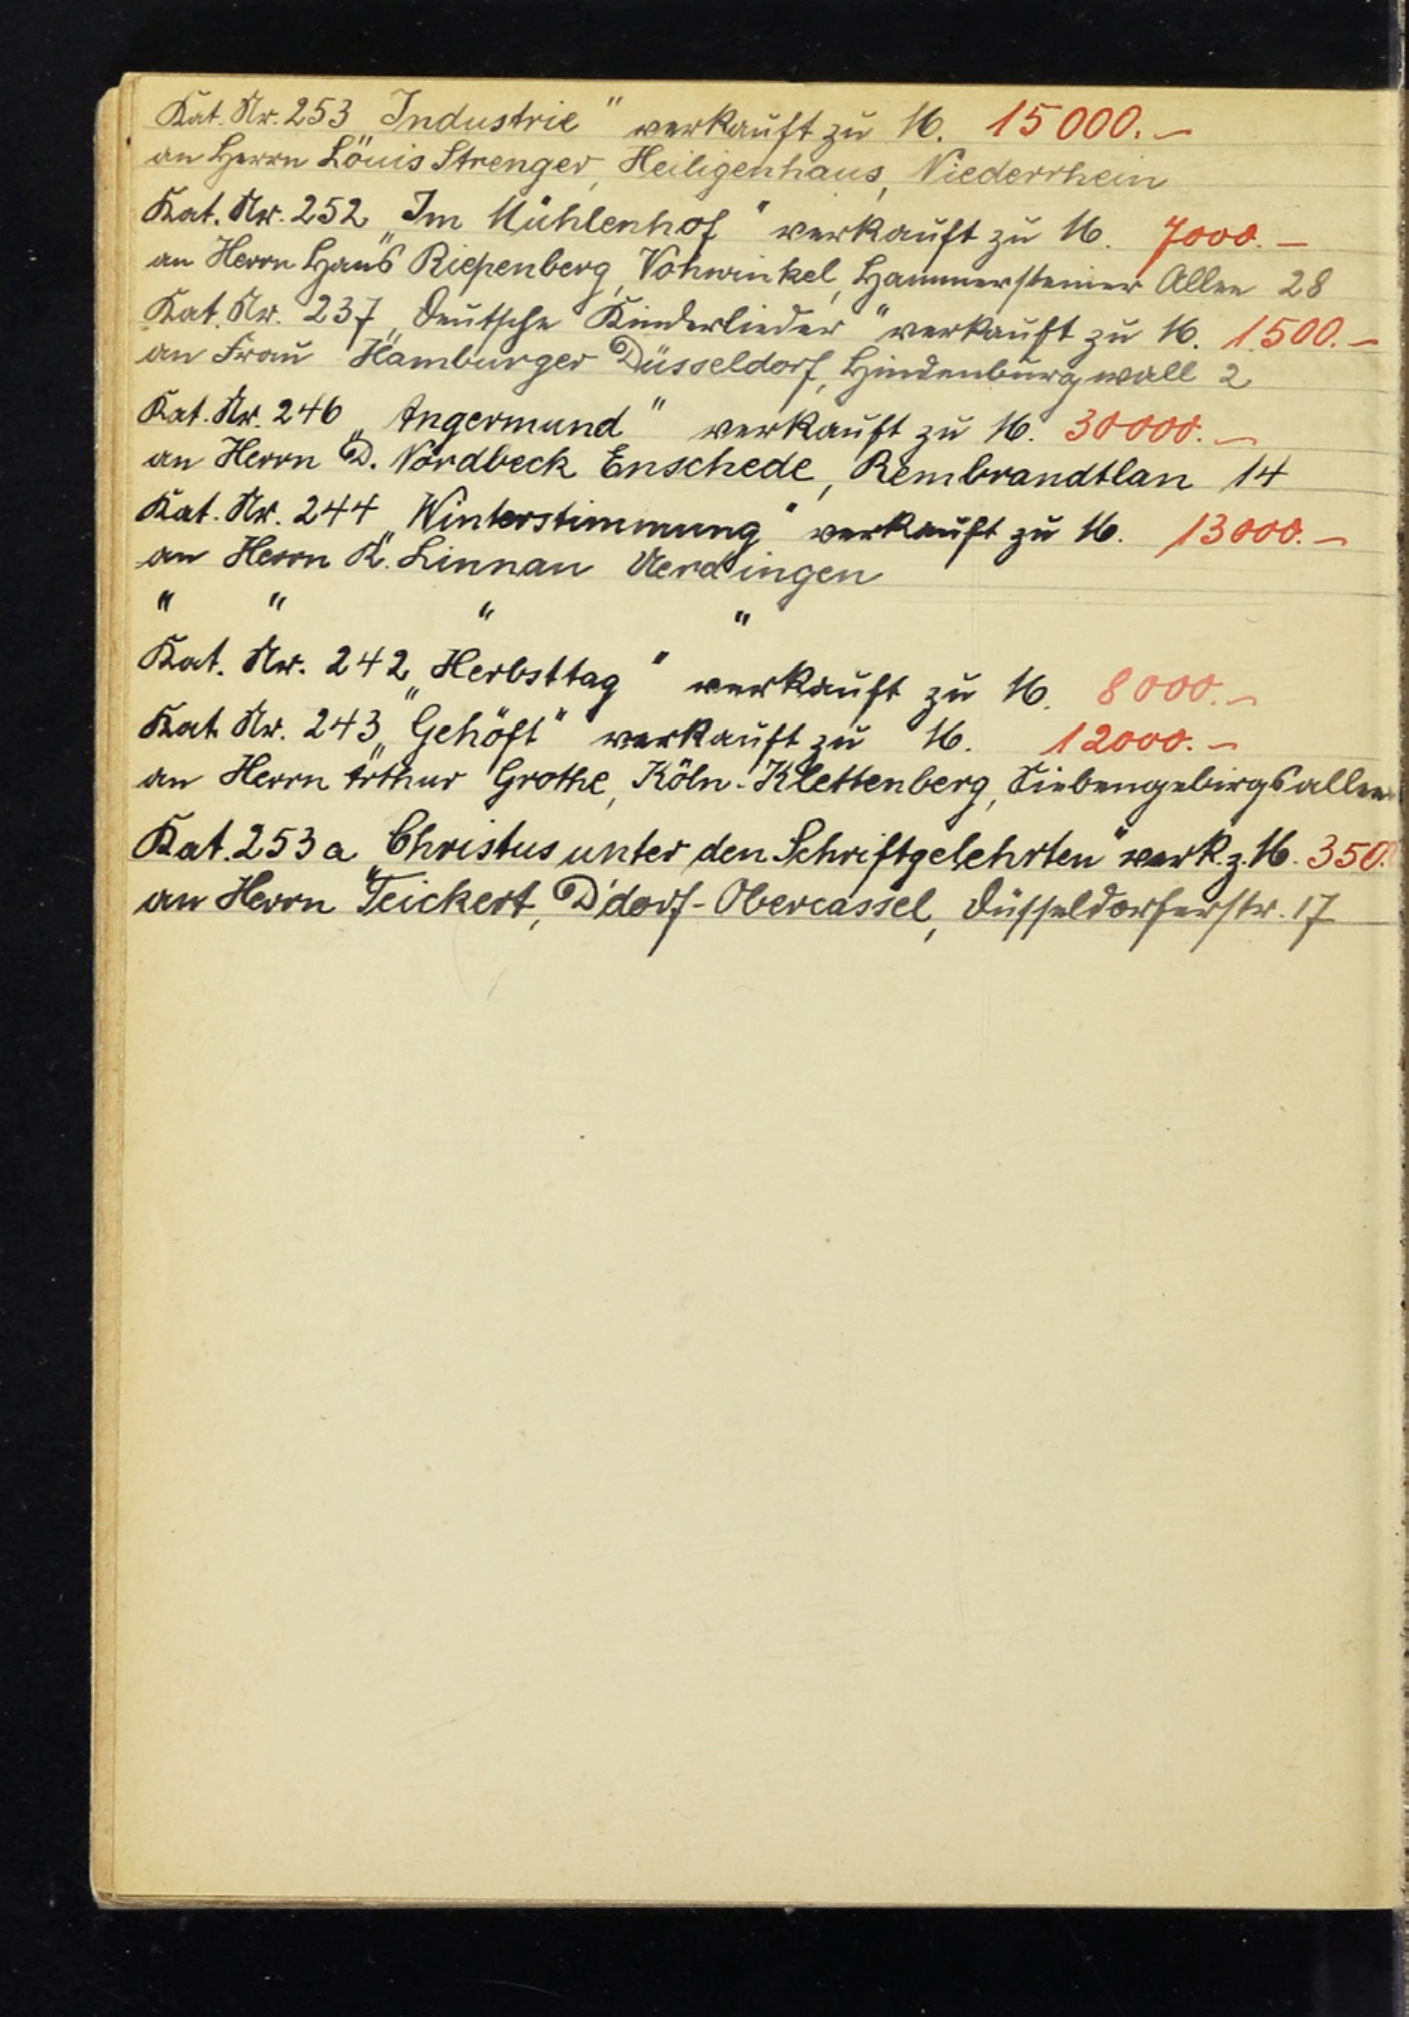 Kat. Nr. 253 „Industrie" verkauft zu M. 15000.—
an Herrn Louis Strenger, Heiligenhaus, Niederrhein
Kat. Nr. 252 „Im Mühlenhof" verkauft zu M. 7000.—
an Herrn Hans Riepenberg, Vohwinkel, Hammersteiner Allee 28
Kat. Nr. 237 „Deutsche Kinderlieder" verkauft zu M. 1500.—
an Frau Hamburger Düsseldorf, Hindenburgwall 2
Kat. Nr. 246 „Angermund" verkauft zu M. 30000.—
an Herrn D. Nordbeck Enschede, Rembrandtlan 14
Kat. Nr. 244 „Winterstimmung" verkauft zu M. 13000.—
an Herrn K. Linnan Uerdingen
" " " "
Kat. Nr. 242 „Herbsttag" verkauft zu M. 8000.—
Kat. Nr. 243 „Gehöft" verkauft zu M. 12000.—
an Herrn Arthur Grothe, Köln-Klettenberg, Siebengebirgsallee
Kat. 253a „Christus unter den Schriftgelehrten" verk. z. M. 350.
an Herrn Teickert, D'dorf-Obercassel, Düsseldorferstr. 17